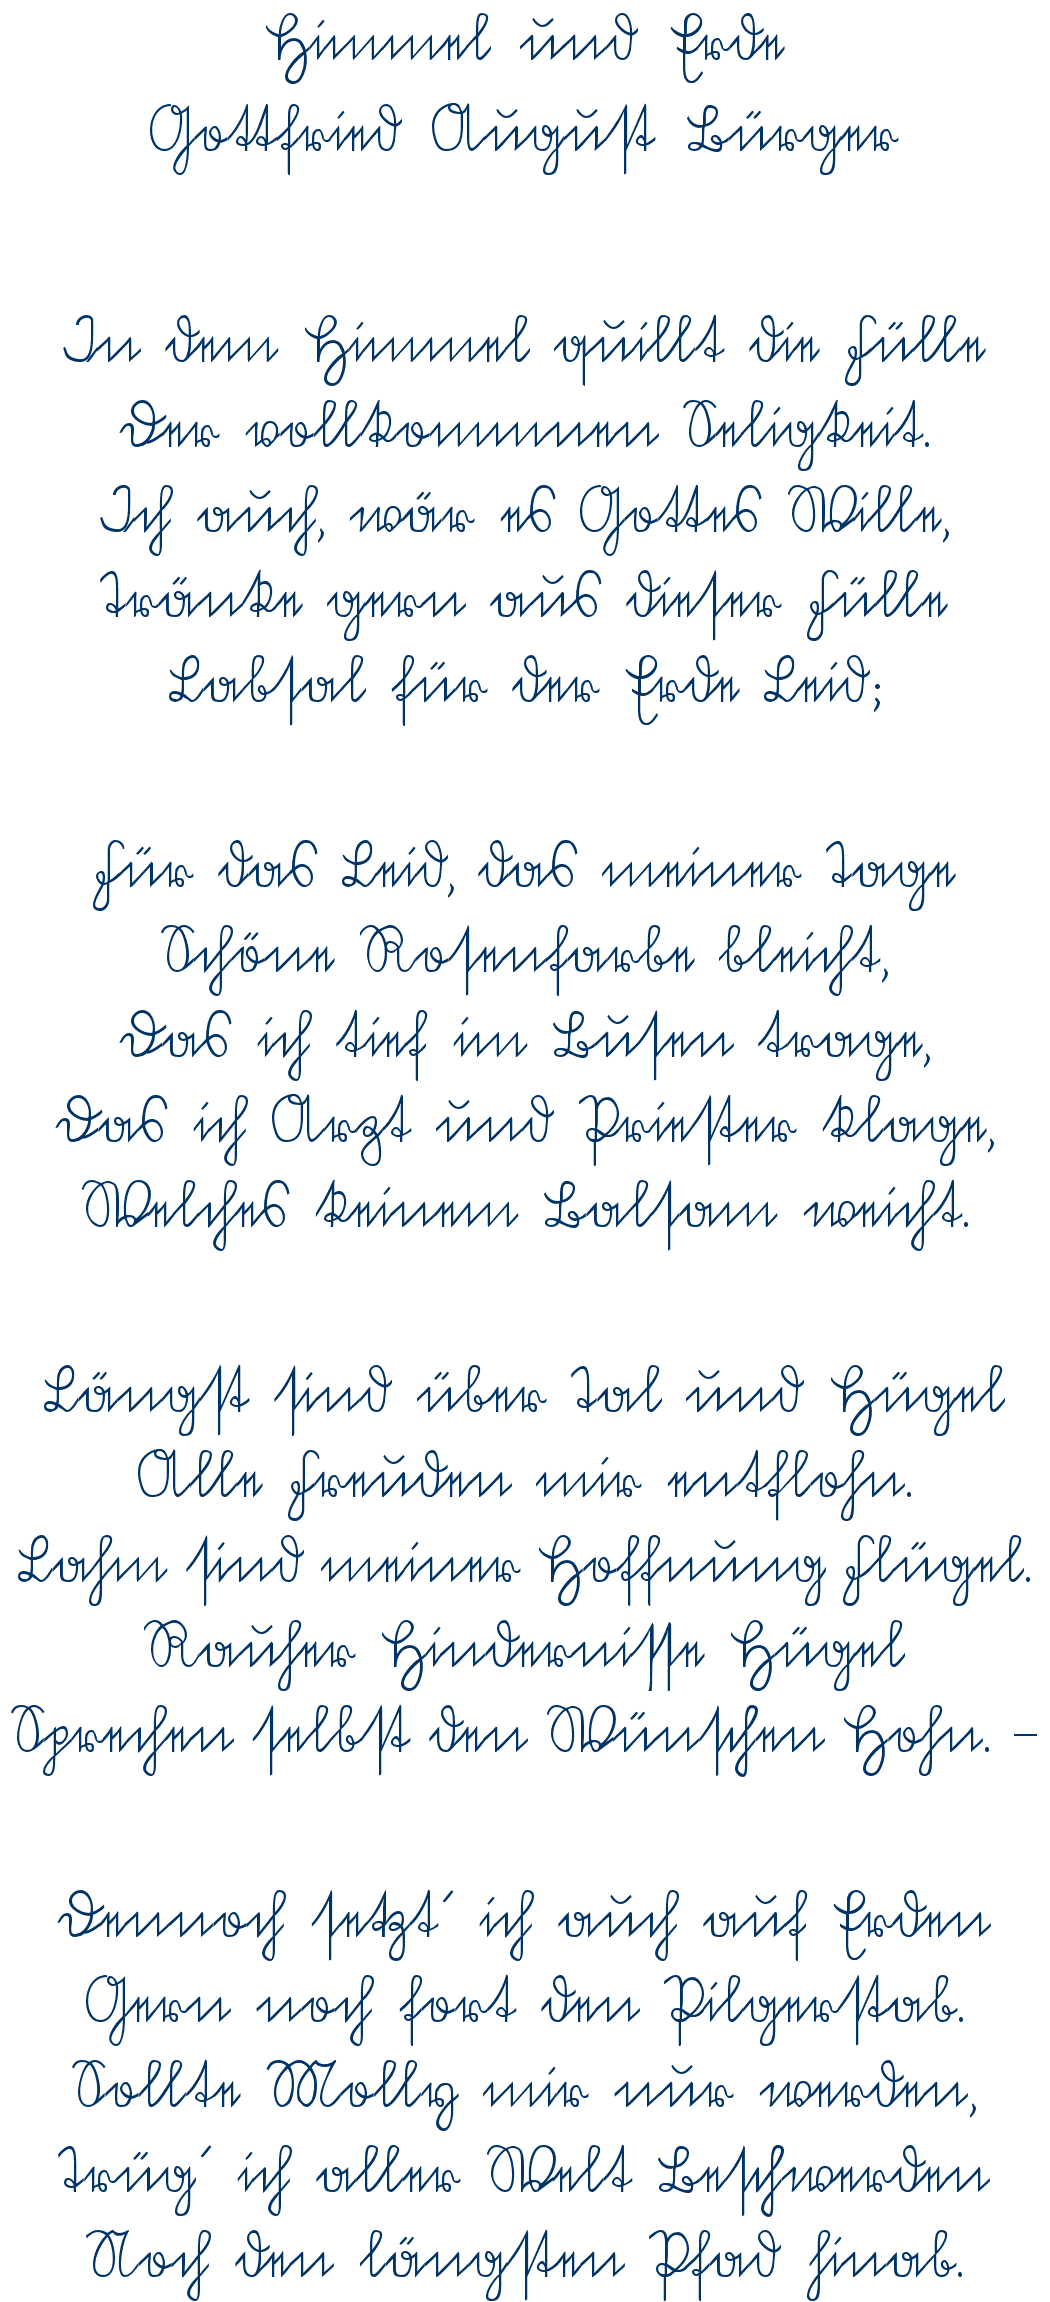 Himmel und Erde
Gottfried August Bürger
In dem Himmel quillt die Fülle
Der vollkommnen Seligkeit.
Ich auch, wär es Gottes Wille,
Tränke gern aus dieser Fülle
Labsal für der Erde Leid;
Für das Leid, das meiner Tage
Schöne Rosenfarbe bleicht,
Das ich tief im Busen trage,
Das ich Arzt und Priester klage,
Welches keinem Balsam weicht.
Längst sind über Tal und Hügel
Alle Freuden mir entflohn.
Lahm sind meiner Hoffnung Flügel.
Rauher Hindernisse Hügel
Sprechen selbst den Wünschen Hohn. –
Dennoch setzt´ ich auch auf Erden
Gern noch fort den Pilgerstab.
Sollte Molly mir nur werden,
Trüg´ ich aller Welt Beschwerden
Noch den längsten Pfad hinab.